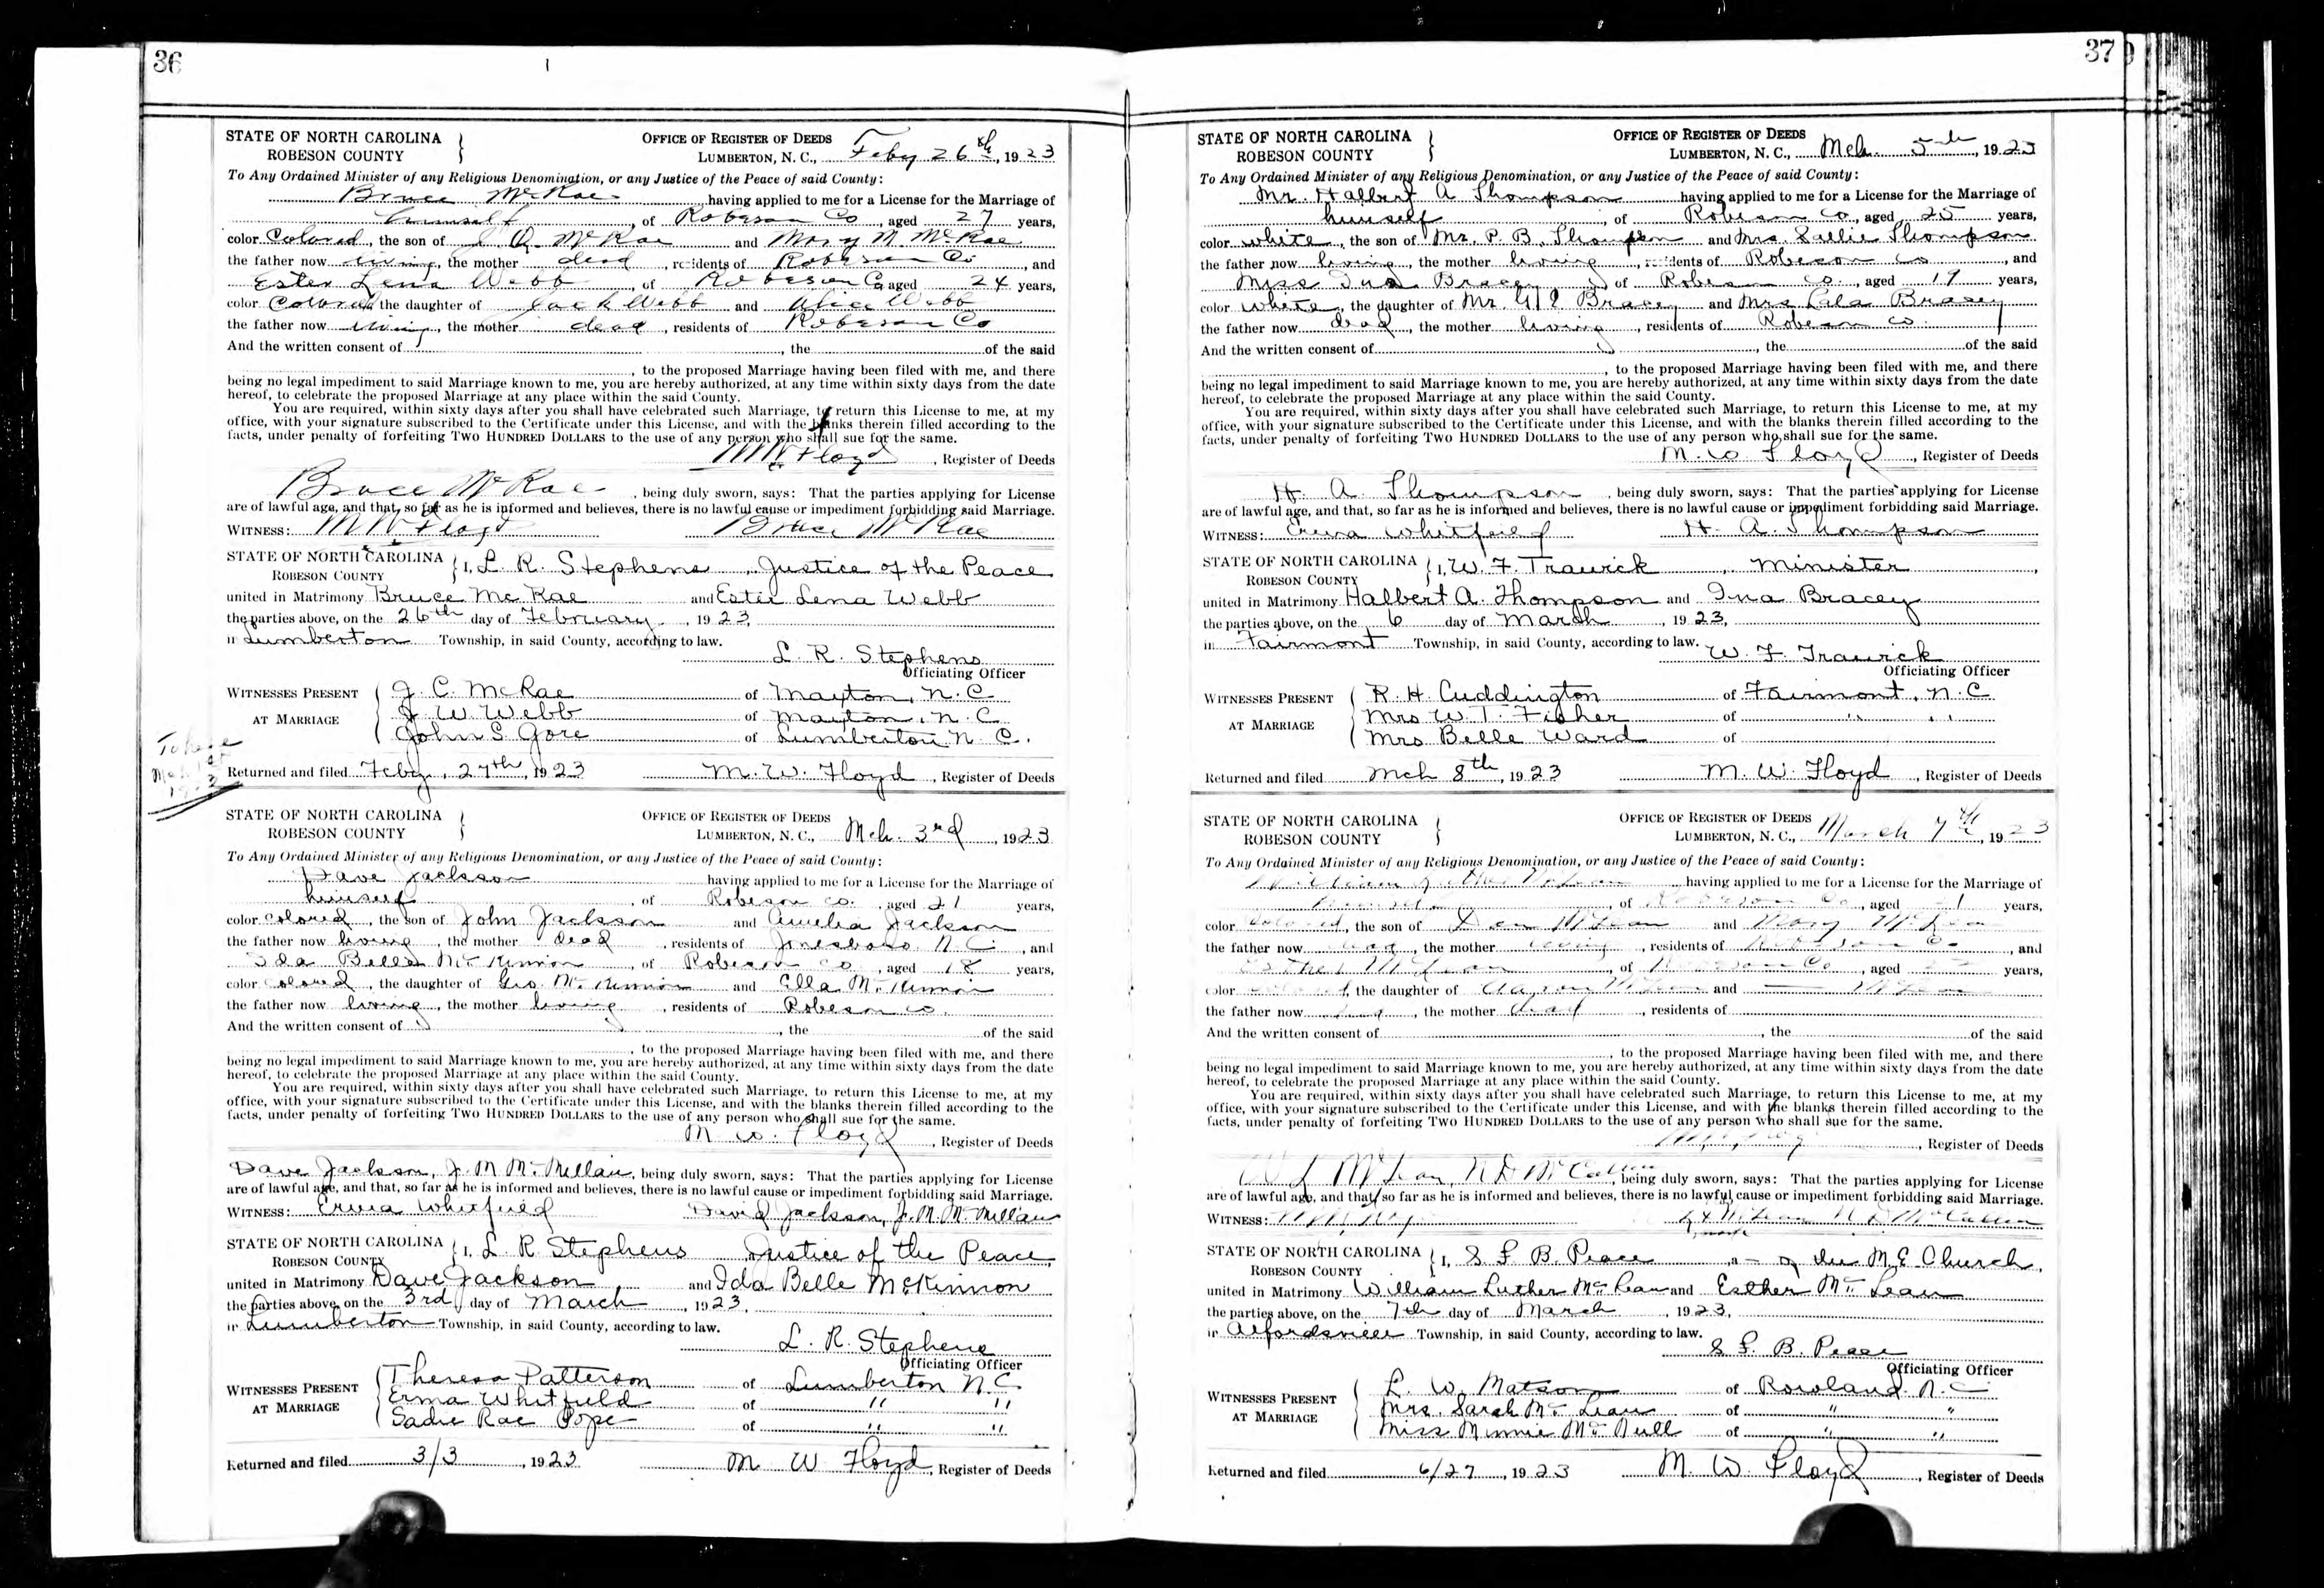 36
STATE OF NORTH CAROLINA
ROBESON COUNTY
OFFICE OF REGISTER OF DEEDS
LUMBERTON, N. C., Feby 26th, 1923
To Any Ordained Minister of any Religious Denomination, or any Justice of the Peace of said County:
Bruce McRae having applied to me for a License for the Marriage of
himself, of Robeson Co, aged 27 years,
color Colored, the son of McRae and Mary M. McRae
the father now living, the mother dead, residents of Robeson Co, and
Ester Lena Webb, of Robeson Co aged 24 years,
color Colored the daughter of Jack Webb and Alice Webb
the father now living, the mother dead, residents of Robeson Co
And the written consent of, the of the said
, to the proposed Marriage having been filed with me, and there
being no legal impediment to said Marriage known to me, you are hereby authorized, at any time within sixty days from the date
hereof, to celebrate the proposed Marriage at any place within the said County.
You are required, within sixty days after you shall have celebrated such Marriage, to return this License to me, at my
office, with your signature subscribed to the Certificate under this License, and with the blanks therein filled according to the
facts, under penalty of forfeiting TWO HUNDRED DOLLARS to the use of any person who shall sue for the same.
M W Floyd, Register of Deeds
Bruce McRae, being duly sworn, says: That the parties applying for License
are of lawful age, and that, so far as he is informed and believes, there is no lawful cause or impediment forbidding said Marriage.
WITNESS: M W Floyd Bruce McRae
STATE OF NORTH CAROLINA
ROBESON COUNTY
I, L. R. Stephens, Justice of the Peace
united in Matrimony Bruce McRae and Ester Lena Webb
the parties above, on the 26th day of February, 1923,
in Lumberton Township, in said County, according to law.
L. R. Stephens
Officiating Officer
WITNESSES PRESENT
AT MARRIAGE
J. C. McRae of Maxton, N. C.
J. W. Webb of Maxton, N. C.
John S. Gore of Lumberton N. C.
Returned and filed Feby, 27th, 1923 M. W. Floyd, Register of Deeds
STATE OF NORTH CAROLINA
ROBESON COUNTY
OFFICE OF REGISTER OF DEEDS
LUMBERTON, N. C., Mch. 3rd, 1923
To Any Ordained Minister of any Religious Denomination, or any Justice of the Peace of said County:
Dave Jackson having applied to me for a License for the Marriage of
himself, of Robeson Co., aged 21 years,
color colored, the son of John Jackson and Amelia Jackson
the father now living, the mother dead, residents of Jonesboro N. C., and
Ida Belle McKinnon, of Robeson Co, aged 18 years,
color colored, the daughter of Geo. McKinnon and Ella McKinnon
the father now living, the mother living, residents of Robeson Co.
And the written consent of, the of the said
, to the proposed Marriage having been filed with me, and there
being no legal impediment to said Marriage known to me, you are hereby authorized, at any time within sixty days from the date
hereof, to celebrate the proposed Marriage at any place within the said County.
You are required, within sixty days after you shall have celebrated such Marriage, to return this License to me, at my
office, with your signature subscribed to the Certificate under this License, and with the blanks therein filled according to the
facts, under penalty of forfeiting TWO HUNDRED DOLLARS to the use of any person who shall sue for the same.
M W. Floyd, Register of Deeds
Dave Jackson, J. M. McMillan, being duly sworn, says: That the parties applying for License
are of lawful age, and that, so far as he is informed and believes, there is no lawful cause or impediment forbidding said Marriage.
WITNESS: Erma Whitfield David Jackson, J. M. McMillan
STATE OF NORTH CAROLINA
ROBESON COUNTY
I, L. R. Stephens Justice of the Peace
united in Matrimony Dave Jackson and Ida Belle McKinnon
the parties above, on the 3rd day of March, 1923,
in Lumberton Township, in said County, according to law.
L. R. Stephens
Officiating Officer
WITNESSES PRESENT
AT MARRIAGE
Theresa Patterson of Lumberton N. C.
Erma Whitfield of " "
Sadie Rae Pope of " "
Returned and filed 3/3, 1923 M W Floyd, Register of Deeds
37
STATE OF NORTH CAROLINA
ROBESON COUNTY
OFFICE OF REGISTER OF DEEDS
LUMBERTON, N. C., Mch. 5th, 1923
To Any Ordained Minister of any Religious Denomination, or any Justice of the Peace of said County:
Mr. Halbert A Thompson having applied to me for a License for the Marriage of
himself of Robeson Co, aged 25 years,
color white, the son of Mr. P. B. Thompson and Mrs. Sallie Thompson
the father now living, the mother living, residents of Robeson Co, and
Miss Ina Bracey of Robeson Co., aged 19 years,
color white, the daughter of Mr. Bracey and Mrs Lula Bracey
the father now dead, the mother living, residents of Robeson Co.
And the written consent of, the of the said
, to the proposed Marriage having been filed with me, and there
being no legal impediment to said Marriage known to me, you are hereby authorized, at any time within sixty days from the date
hereof, to celebrate the proposed Marriage at any place within the said County.
You are required, within sixty days after you shall have celebrated such Marriage, to return this License to me, at my
office, with your signature subscribed to the Certificate under this License, and with the blanks therein filled according to the
facts, under penalty of forfeiting TWO HUNDRED DOLLARS to the use of any person who shall sue for the same.
M. W. Floyd, Register of Deeds
H. A. Thompson, being duly sworn, says: That the parties applying for License
are of lawful age, and that, so far as he is informed and believes, there is no lawful cause or impediment forbidding said Marriage.
WITNESS: Erma Whitfield H. A. Thompson
STATE OF NORTH CAROLINA
ROBESON COUNTY
I, W. F. Trawick, Minister,
united in Matrimony Halbert A. Thompson and Ina Bracey
the parties above, on the 6 day of March, 1923,
in Fairmont Township, in said County, according to law.
W. F. Trawick
Officiating Officer
WITNESSES PRESENT
AT MARRIAGE
R. H. Cuddington of Fairmont, N. C.
Mrs W. T. Fisher of " "
Mrs Belle Ward of
Returned and filed Mch 8th, 1923 M. W. Floyd, Register of Deeds
STATE OF NORTH CAROLINA
ROBESON COUNTY
OFFICE OF REGISTER OF DEEDS
LUMBERTON, N. C., March 7th, 1923
To Any Ordained Minister of any Religious Denomination, or any Justice of the Peace of said County:
William Luther McLean, having applied to me for a License for the Marriage of
himself, of Robeson Co, aged years,
color Colored, the son of Dan McLean and Mary McLean
the father now dead, the mother living, residents of Robeson Co, and
Esther McLean, of Robeson Co, aged years,
color Colored, the daughter of Aaron McLean and — McLean
the father now dead, the mother dead, residents of
And the written consent of, the of the said
, to the proposed Marriage having been filed with me, and there
being no legal impediment to said Marriage known to me, you are hereby authorized, at any time within sixty days from the date
hereof, to celebrate the proposed Marriage at any place within the said County.
You are required, within sixty days after you shall have celebrated such Marriage, to return this License to me, at my
office, with your signature subscribed to the Certificate under this License, and with the blanks therein filled according to the
facts, under penalty of forfeiting TWO HUNDRED DOLLARS to the use of any person who shall sue for the same.
, Register of Deeds
W L McLean, N D McCallum, being duly sworn, says: That the parties applying for License
are of lawful age, and that, so far as he is informed and believes, there is no lawful cause or impediment forbidding said Marriage.
WITNESS: McLean N D McCallum
STATE OF NORTH CAROLINA
ROBESON COUNTY
I, S F. B. Peace, a — of the M. E. Church,
united in Matrimony William Luther McLean and Esther McLean
the parties above, on the 7th day of March, 1923,
in Alfordsville Township, in said County, according to law.
S F. B. Peace
Officiating Officer
WITNESSES PRESENT
AT MARRIAGE
L. W. Matson of Rowland N. C
Mrs. Sarah McLean of " "
Miss Minnie McNull of " "
Returned and filed 6/27, 1923 M. W. Floyd, Register of Deeds